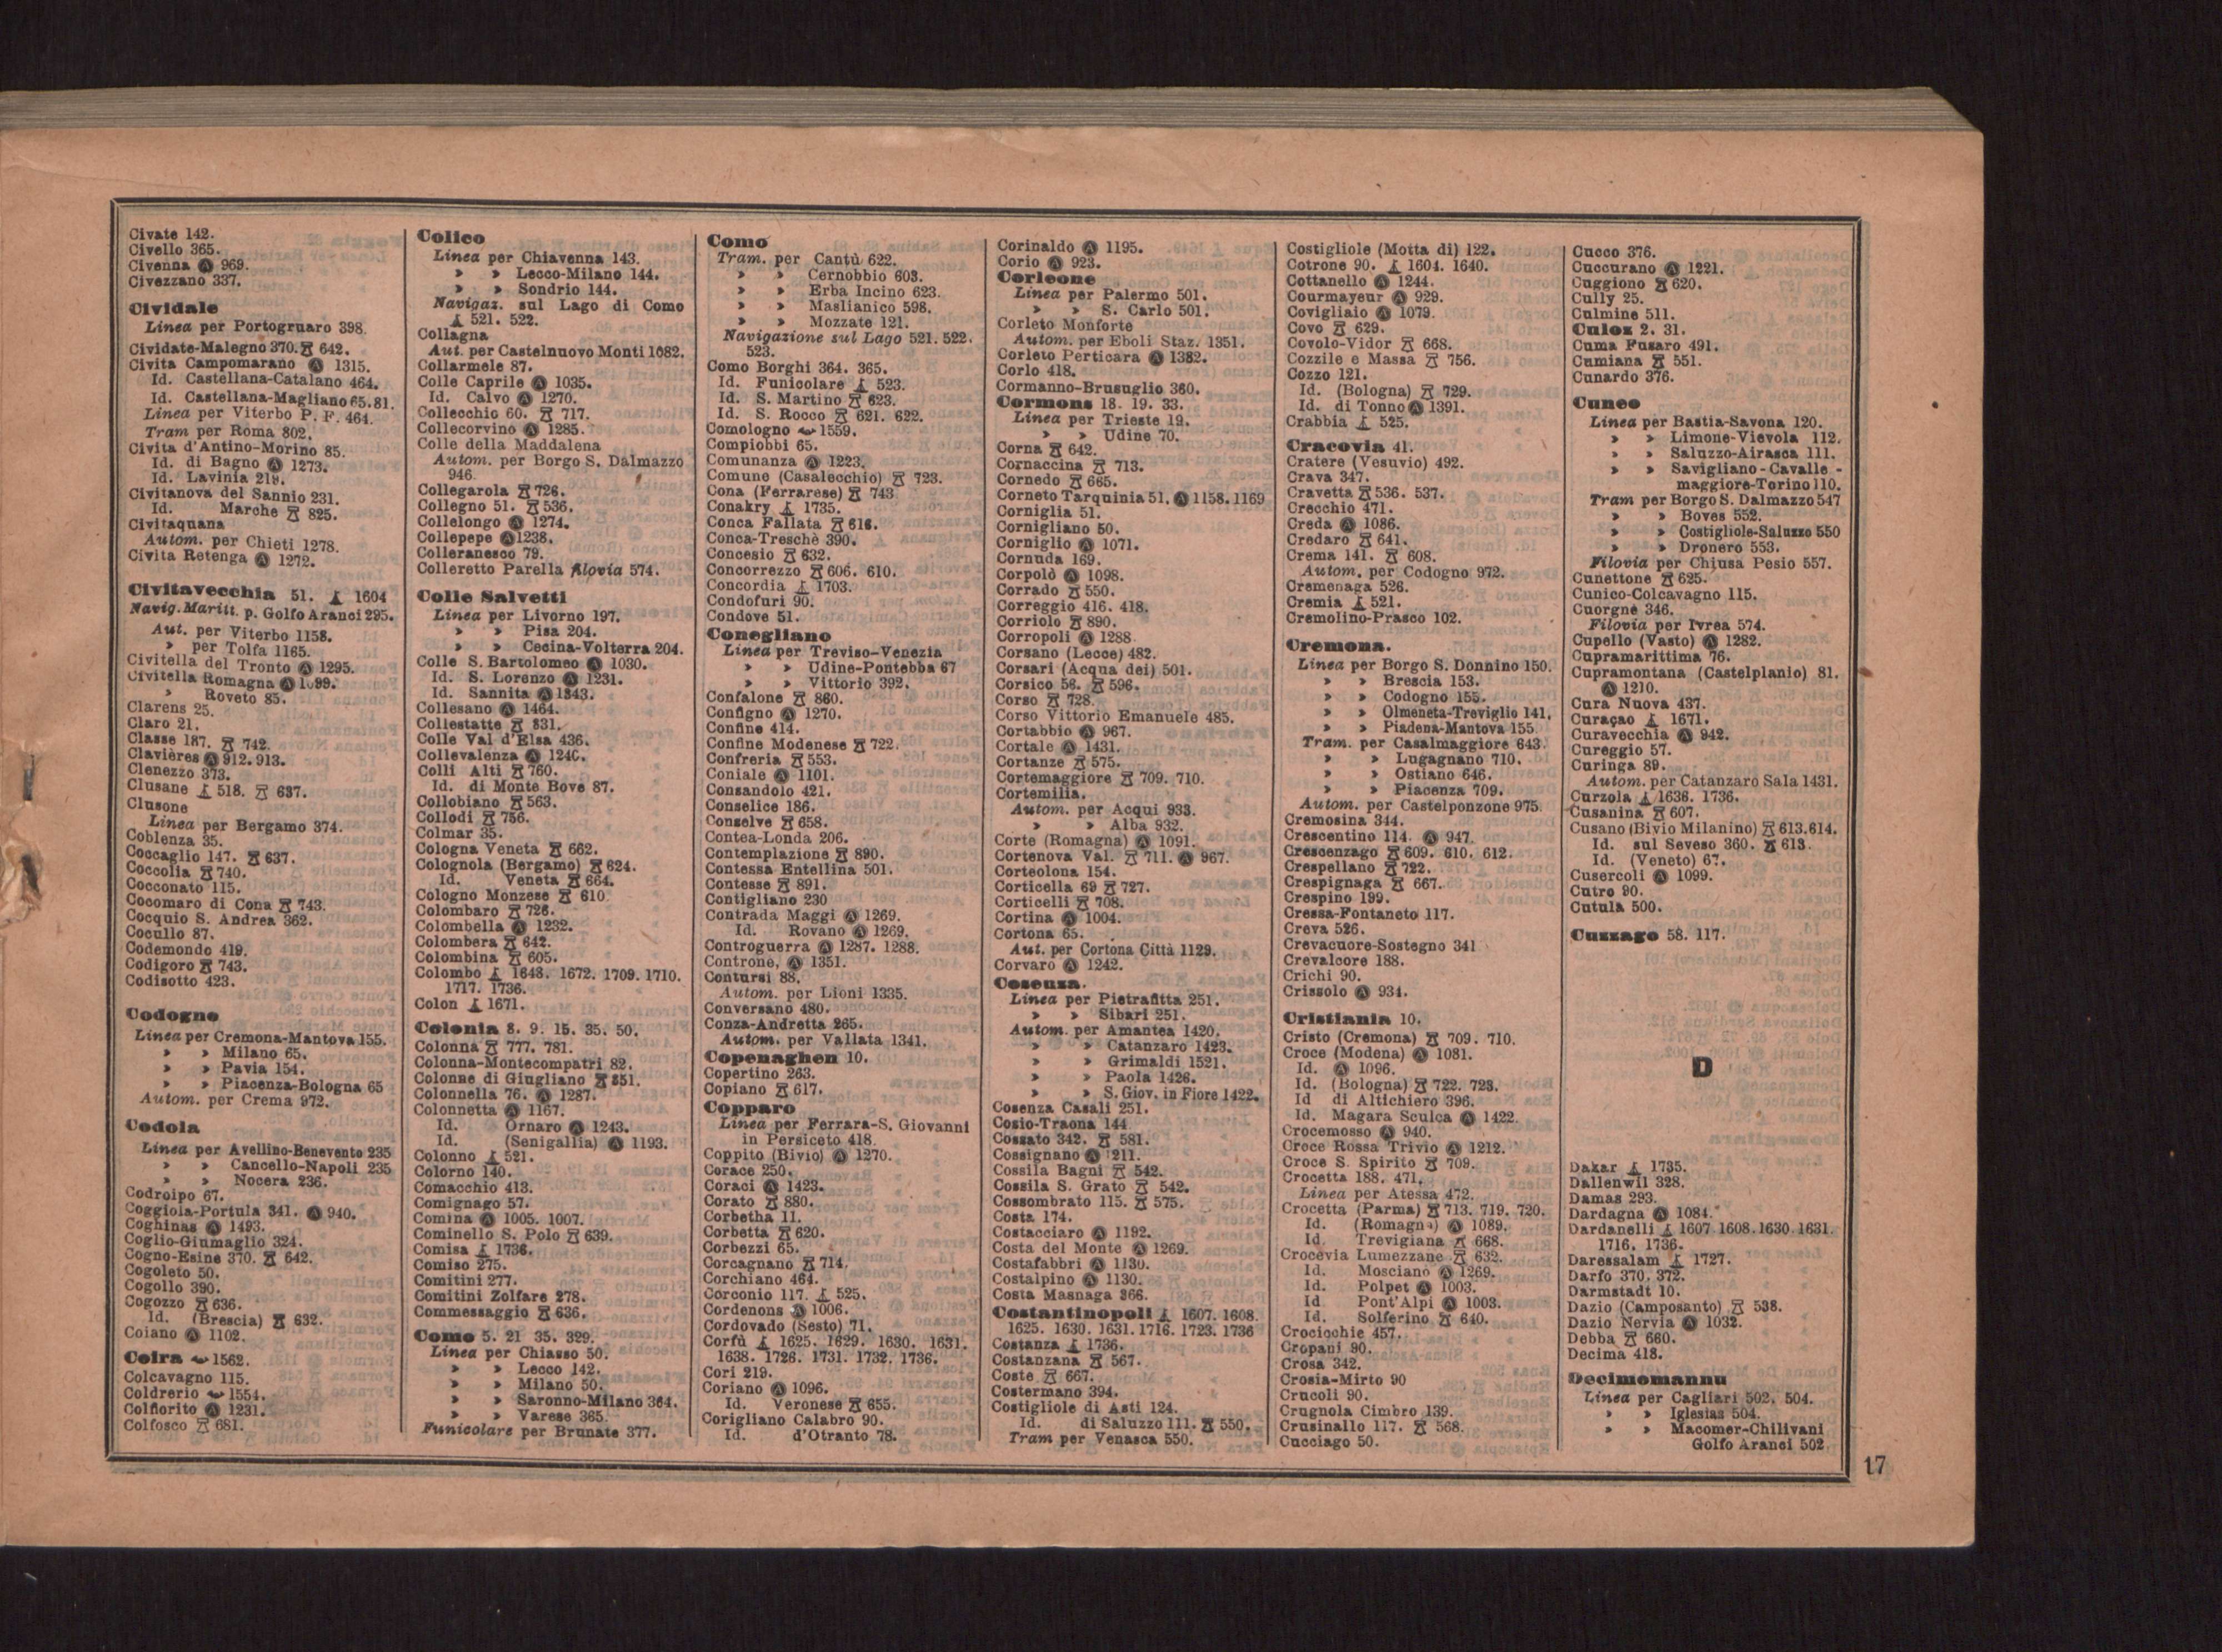 Civate 142.
Civello 365.
Civenna Ⓐ 969.
Civezzano 337.
Cividale
Linea per Portogruaro 398.
Cividate-Malegno 370. 642.
Civita Campomarano Ⓐ 1315.
Id. Castellana-Catalano 464.
Id. Castellana-Magliano 65. 81.
Linea per Viterbo P. F. 464.
Tram per Roma 802.
Civita d'Antino-Morino 85.
Id. di Bagno Ⓐ 1273.
Id. Lavinia 219.
Civitanova del Sannio 231.
Id. Marche 825.
Civitaquana
Autom. per Chieti 1278.
Civita Retenga Ⓐ 1272.
Civitavecchia 51. 1604
Navig. Maritt. p. Golfo Aranci 295.
Aut. per Viterbo 1158.
» per Tolfa 1165.
Civitella del Tronto Ⓐ 1295.
Civitella Romagna Ⓐ 1099.
» Roveto 85.
Clarens 25.
Claro 21.
Classe 187. 742.
Clavières Ⓐ 912. 913.
Clenezzo 373.
Clusane 518. 637.
Clusone
Linea per Bergamo 374.
Coblenza 35.
Coccaglio 147. 637.
Coccolia 740.
Cocconato 115.
Cocomaro di Cona 743.
Cocquio S. Andrea 362.
Cocullo 87.
Codemondo 419.
Codigoro 743.
Codisotto 423.
Codogno
Linea per Cremona-Mantova 155.
» » Milano 65.
» » Pavia 154.
» » Piacenza-Bologna 65
Autom. per Crema 972.
Codola
Linea per Avellino-Benevento 235
» » Cancello-Napoli 235
» » Nocera 236.
Codroipo 67.
Coggiola-Portula 341. Ⓐ 940.
Coghinas Ⓐ 1493.
Coglio-Giumaglio 324.
Cogno-Esine 370. 642.
Cogoleto 50.
Cogollo 390.
Cogozzo 636.
Id. (Brescia) 632.
Coiano Ⓐ 1102.
Coira 1562.
Colcavagno 115.
Coldrerio 1554.
Colfiorito Ⓐ 1231.
Colfosco 681.
Colico
Linea per Chiavenna 143.
» » Lecco-Milano 144.
» » Sondrio 144.
Navigaz. sul Lago di Como
521. 522.
Collagna
Aut. per Castelnuovo Monti 1082.
Collarmele 87.
Colle Caprile Ⓐ 1035.
Id. Calvo Ⓐ 1270.
Collecchio 60. 717.
Collecorvino Ⓐ 1285.
Colle della Maddalena
Autom. per Borgo S. Dalmazzo
946.
Collegarola 726.
Collegno 51. 536.
Collelongo Ⓐ 1274.
Collepepe Ⓐ 1238.
Colleranesco 79.
Colleretto Parella filovia 574.
Colle Salvetti
Linea per Livorno 197.
» » Pisa 204.
» » Cecina-Volterra 204.
Colle S. Bartolomeo Ⓐ 1030.
Id. S. Lorenzo Ⓐ 1231.
Id. Sannita Ⓐ 1343.
Collesano Ⓐ 1464.
Collestatte 831.
Colle Val d'Elsa 436.
Collevalenza Ⓐ 1240.
Colli Alti 760.
Id. di Monte Bove 87.
Collobiano 563.
Collodi 756.
Colmar 35.
Cologna Veneta 662.
Colognola (Bergamo) 624.
Id. Veneta 664.
Cologno Monzese 610
Colombaro 726.
Colombella Ⓐ 1232.
Colombera 642.
Colombina 605.
Colombo 1648. 1672. 1709. 1710.
1717. 1736.
Colon 1671.
Colonia 8. 9. 15. 35. 50.
Colonna 777. 781.
Colonna-Montecompatri 82.
Colonne di Giugliano 851.
Colonnella 76. Ⓐ 1287.
Colonnetta Ⓐ 1167.
Id. Ornaro Ⓐ 1243.
Id. (Senigallia) Ⓐ 1193.
Colonno 521.
Colorno 140.
Comacchio 413.
Comignago 57.
Comina Ⓐ 1005. 1007.
Cominello S. Polo 639.
Comisa 1736.
Comiso 275.
Comitini 277.
Comitini Zolfare 278.
Commessaggio 636.
Como 5. 21 35. 329.
Linea per Chiasso 50.
» » Lecco 142.
» » Milano 50.
» » Saronno-Milano 364.
» » Varese 365.
Funicolare per Brunate 377.
Como
Tram. per Cantù 622.
» » Cernobbio 603.
» » Erba Incino 623.
» » Maslianico 598.
» » Mozzate 121.
Navigazione sul Lago 521. 522.
523.
Como Borghi 364. 365.
Id. Funicolare 523.
Id. S. Martino 623.
Id. S. Rocco 621. 622.
Comologno 1559.
Compiobbi 65.
Comunanza Ⓐ 1223.
Comune (Casalecchio) 723.
Cona (Ferrarese) 743
Conakry 1735.
Conca Fallata 616.
Conca-Treschè 390.
Concesio 632.
Concorrezzo 606. 610.
Concordia 1703.
Condofuri 90.
Condove 51.
Conegliano
Linea per Treviso-Venezia
» » Udine-Pontebba 67
» » Vittorio 392.
Confalone 860.
Configno Ⓐ 1270.
Confine 414.
Confine Modenese 722.
Confreria 553.
Coniale Ⓐ 1101.
Consandolo 421.
Conselice 186.
Conselve 658.
Contea-Londa 206.
Contemplazione 890.
Contessa Entellina 501.
Contesse 891.
Contigliano 230
Contrada Maggi Ⓐ 1269.
Id. Rovano Ⓐ 1269.
Controguerra Ⓐ 1287. 1288.
Controne, Ⓐ 1351.
Contursi 88.
Autom. per Lioni 1335.
Conversano 480.
Conza-Andretta 265.
Autom. per Vallata 1341.
Copenaghen 10.
Copertino 263.
Copiano 617.
Copparo
Linea per Ferrara-S. Giovanni
in Persiceto 418.
Coppito (Bivio) Ⓐ 1270.
Corace 250.
Coraci Ⓐ 1423.
Corato 880.
Corbetha 11.
Corbetta 620.
Corbezzi 65.
Corcagnano 714.
Corchiano 464.
Corconio 117. 525.
Cordenons Ⓐ 1006.
Cordovado (Sesto) 71.
Corfù 1625. 1629. 1630. 1631.
1638. 1726. 1731. 1732. 1736.
Cori 219.
Coriano Ⓐ 1096.
Id. Veronese 655.
Corigliano Calabro 90.
Id. d'Otranto 78.
Corinaldo Ⓐ 1195.
Corio Ⓐ 923.
Corleone
Linea per Palermo 501.
» » S. Carlo 501.
Corleto Monforte
Autom. per Eboli Staz. 1351.
Corleto Perticara Ⓐ 1382.
Corlo 418.
Cormanno-Brusuglio 360.
Cormons 18. 19. 33.
Linea per Trieste 19.
» » Udine 70.
Corna 642.
Cornaccina 713.
Cornedo 665.
Corneto Tarquinia 51. Ⓐ 1158. 1169
Corniglia 51.
Cornigliano 50.
Corniglio Ⓐ 1071.
Cornuda 169.
Corpolò Ⓐ 1098.
Corrado 550.
Correggio 416. 418.
Corriolo 890.
Corropoli Ⓐ 1288
Corsano (Lecce) 482.
Corsari (Acqua dei) 501.
Corsico 56. 596.
Corso 728.
Corso Vittorio Emanuele 485.
Cortabbio Ⓐ 967.
Cortale Ⓐ 1431.
Cortanze 575.
Cortemaggiore 709. 710.
Cortemilia.
Autom. per Acqui 933.
» » Alba 932.
Corte (Romagna) Ⓐ 1091.
Cortenova Val. 711. Ⓐ 967.
Corteolona 154.
Corticella 69 727.
Corticelli 708.
Cortina Ⓐ 1004.
Cortona 65.
Aut. per Cortona Città 1129.
Corvaro Ⓐ 1242.
Cosenza.
Linea per Pietrafitta 251.
» » Sibari 251.
Autom. per Amantea 1420.
» » Catanzaro 1423.
» » Grimaldi 1521.
» » Paola 1426.
» » S. Giov. in Fiore 1422.
Cosenza Casali 251.
Cosio-Traona 144
Cossato 342. 581.
Cossignano Ⓐ 1211.
Cossila Bagni 542.
Cossila S. Grato 542.
Cossombrato 115. 575.
Costa 174.
Costacciaro Ⓐ 1192.
Costa del Monte Ⓐ 1269.
Costafabbri Ⓐ 1130.
Costalpino Ⓐ 1130.
Costa Masnaga 366.
Costantinopoli 1607. 1608.
1625. 1630. 1631. 1716. 1723. 1736
Costanza 1736.
Costanzana 567.
Coste 667.
Costermano 394.
Costigliole di Asti 124.
Id. di Saluzzo 111. 550.
Tram per Venasca 550.
Costigliole (Motta di) 122.
Cotrone 90. 1604. 1640.
Cottanello Ⓐ 1244.
Courmayeur Ⓐ 929.
Covigliaio Ⓐ 1079.
Covo 629.
Covolo-Vidor 668.
Cozzile e Massa 756.
Cozzo 121.
Id. (Bologna) 729.
Id. di Tonno Ⓐ 1391.
Crabbia 525.
Cracovia 41.
Cratere (Vesuvio) 492.
Crava 347.
Cravetta 536. 537.
Crecchio 471.
Creda Ⓐ 1086.
Credaro 641.
Crema 141. 608.
Autom. per Codogno 972.
Cremenaga 526.
Cremia 521.
Cremolino-Prasco 102.
Cremona.
Linea per Borgo S. Donnino 150.
» » Brescia 153.
» » Codogno 155.
» » Olmeneta-Treviglio 141.
» » Piadena-Mantova 155.
Tram. per Casalmaggiore 643.
» » Lugagnano 710.
» » Ostiano 646.
» » Piacenza 709.
Autom. per Castelponzone 975.
Cremosina 344.
Crescentino 114. Ⓐ 947.
Crescenzago 609. 610. 612.
Crespellano 722.
Crespignaga 667.
Crespino 199.
Cressa-Fontaneto 117.
Creva 526.
Crevacuore-Sostegno 341
Crevalcore 188.
Crichi 90.
Crissolo Ⓐ 934.
Cristiania 10.
Cristo (Cremona) 709. 710.
Croce (Modena) Ⓐ 1081.
Id. Ⓐ 1096.
Id. (Bologna) 722. 723.
Id di Altichiero 396.
Id. Magara Sculca Ⓐ 1422.
Crocemosso Ⓐ 940.
Croce Rossa Trivio Ⓐ 1212.
Croce S. Spirito 709.
Crocetta 188. 471.
Linea per Atessa 472.
Crocetta (Parma) 713. 719. 720.
Id. (Romagna) Ⓐ 1089.
Id. Trevigiana 668.
Crocevia Lumezzane 632.
Id. Mosciano Ⓐ 1269.
Id. Polpet Ⓐ 1003.
Id Pont'Alpi Ⓐ 1003.
Id. Solferino 640.
Crocicchie 457.
Cropani 90.
Crosa 342.
Crosia-Mirto 90
Crucoli 90.
Crugnola Cimbro 139.
Crusinallo 117. 568.
Cucciago 50.
Cucco 376.
Cuccurano Ⓐ 1221.
Cuggiono 620.
Cully 25.
Culmine 511.
Culoz 2. 31.
Cuma Fusaro 491.
Cumiana 551.
Cunardo 376.
Cuneo
Linea per Bastia-Savona 120.
» » Limone-Vievola 112.
» » Saluzzo-Airasca 111.
» » Savigliano-Cavalle-
maggiore-Torino 110.
Tram per Borgo S. Dalmazzo 547
» » Boves 552.
» » Costigliole-Saluzzo 550
» » Dronero 553.
Filovia per Chiusa Pesio 557.
Cunettone 625.
Cunico-Colcavagno 115.
Cuorgnè 346.
Filovia per Ivrea 574.
Cupello (Vasto) Ⓐ 1282.
Cupramarittima 76.
Cupramontana (Castelplanio) 81.
Ⓐ 1210.
Cura Nuova 437.
Curaçao 1671.
Curavecchia Ⓐ 942.
Cureggio 57.
Curinga 89.
Autom. per Catanzaro Sala 1431.
Curzola 1636. 1736.
Cusanina 607.
Cusano (Bivio Milanino) 613. 614.
Id. sul Seveso 360. 613.
Id. (Veneto) 67.
Cusercoli Ⓐ 1099.
Cutro 90.
Cutula 500.
Cuzzago 58. 117.
D
Dakar 1735.
Dallenwil 328.
Damas 293.
Dardagna Ⓐ 1084.
Dardanelli 1607 1608. 1630. 1631.
1716. 1736.
Daressalam 1727.
Darfo 370. 372.
Darmstadt 10.
Dazio (Camposanto) 538.
Dazio Nervia Ⓐ 1032.
Debba 660.
Decima 418.
Decimomannu
Linea per Cagliari 502. 504.
» » Iglesias 504.
» » Macomer-Chilivani
Golfo Aranci 502
17